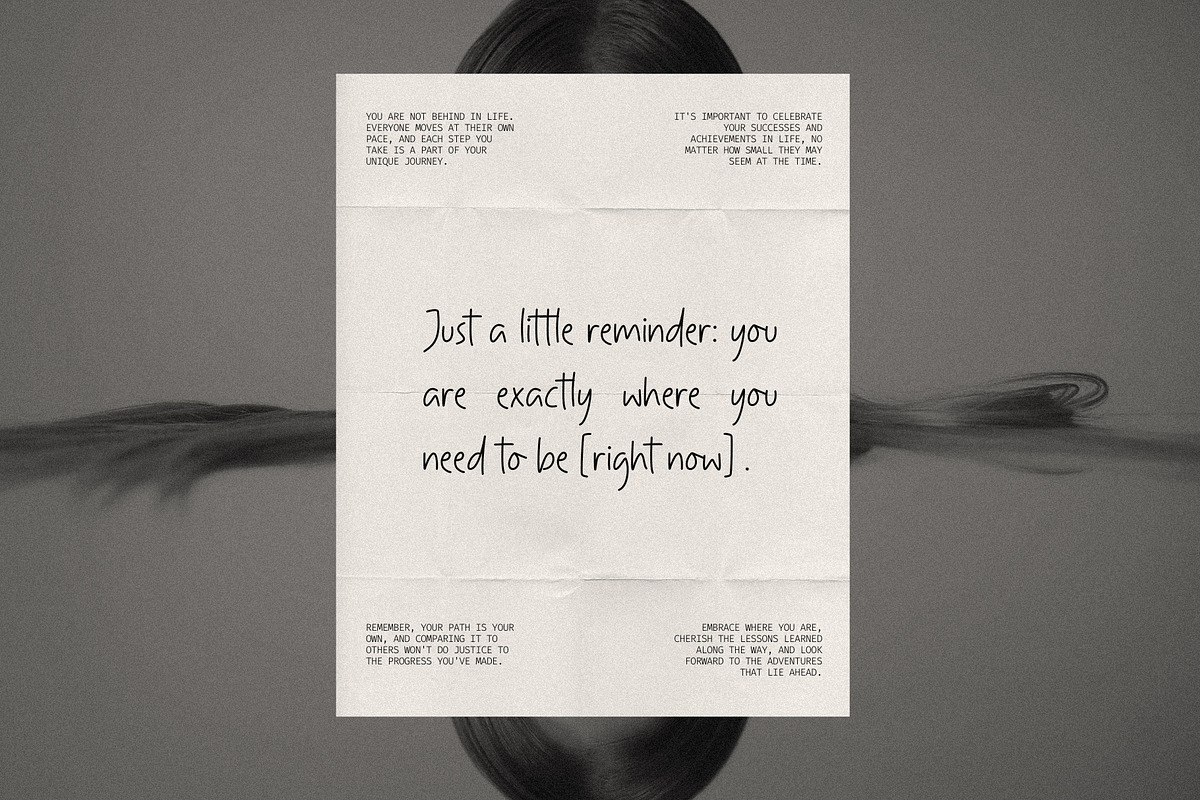 YOU ARE NOT BEHIND IN LIFE.
EVERYONE MOVES AT THEIR OWN
PACE, AND EACH STEP YOU
TAKE IS A PART OF YOUR
UNIQUE JOURNEY.
IT'S IMPORTANT TO CELEBRATE
YOUR SUCCESSES AND
ACHIEVEMENTS IN LIFE, NO
MATTER HOW SMALL THEY MAY
SEEM AT THE TIME.
Just a little reminder: you
are exactly where you
need to be [right now].
REMEMBER, YOUR PATH IS YOUR
OWN, AND COMPARING IT TO
OTHERS WON'T DO JUSTICE TO
THE PROGRESS YOU'VE MADE.
EMBRACE WHERE YOU ARE,
CHERISH THE LESSONS LEARNED
ALONG THE WAY, AND LOOK
FORWARD TO THE ADVENTURES
THAT LIE AHEAD.